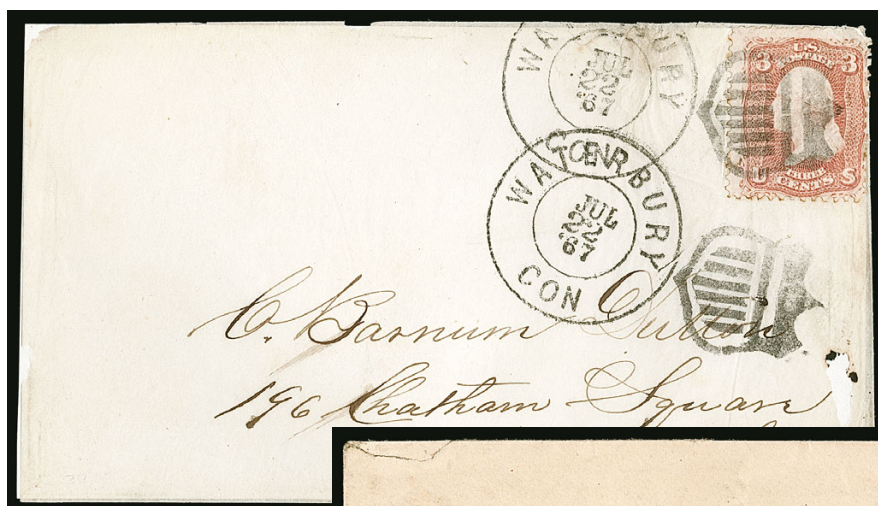 WATERBURY
JUL
22
67
CON
WATERBURY
JUL
22
'67
CON
3 U.S. 3
POSTAGE
U THREE S
CENTS
C. Barnum Sutton
196 Chatham Square